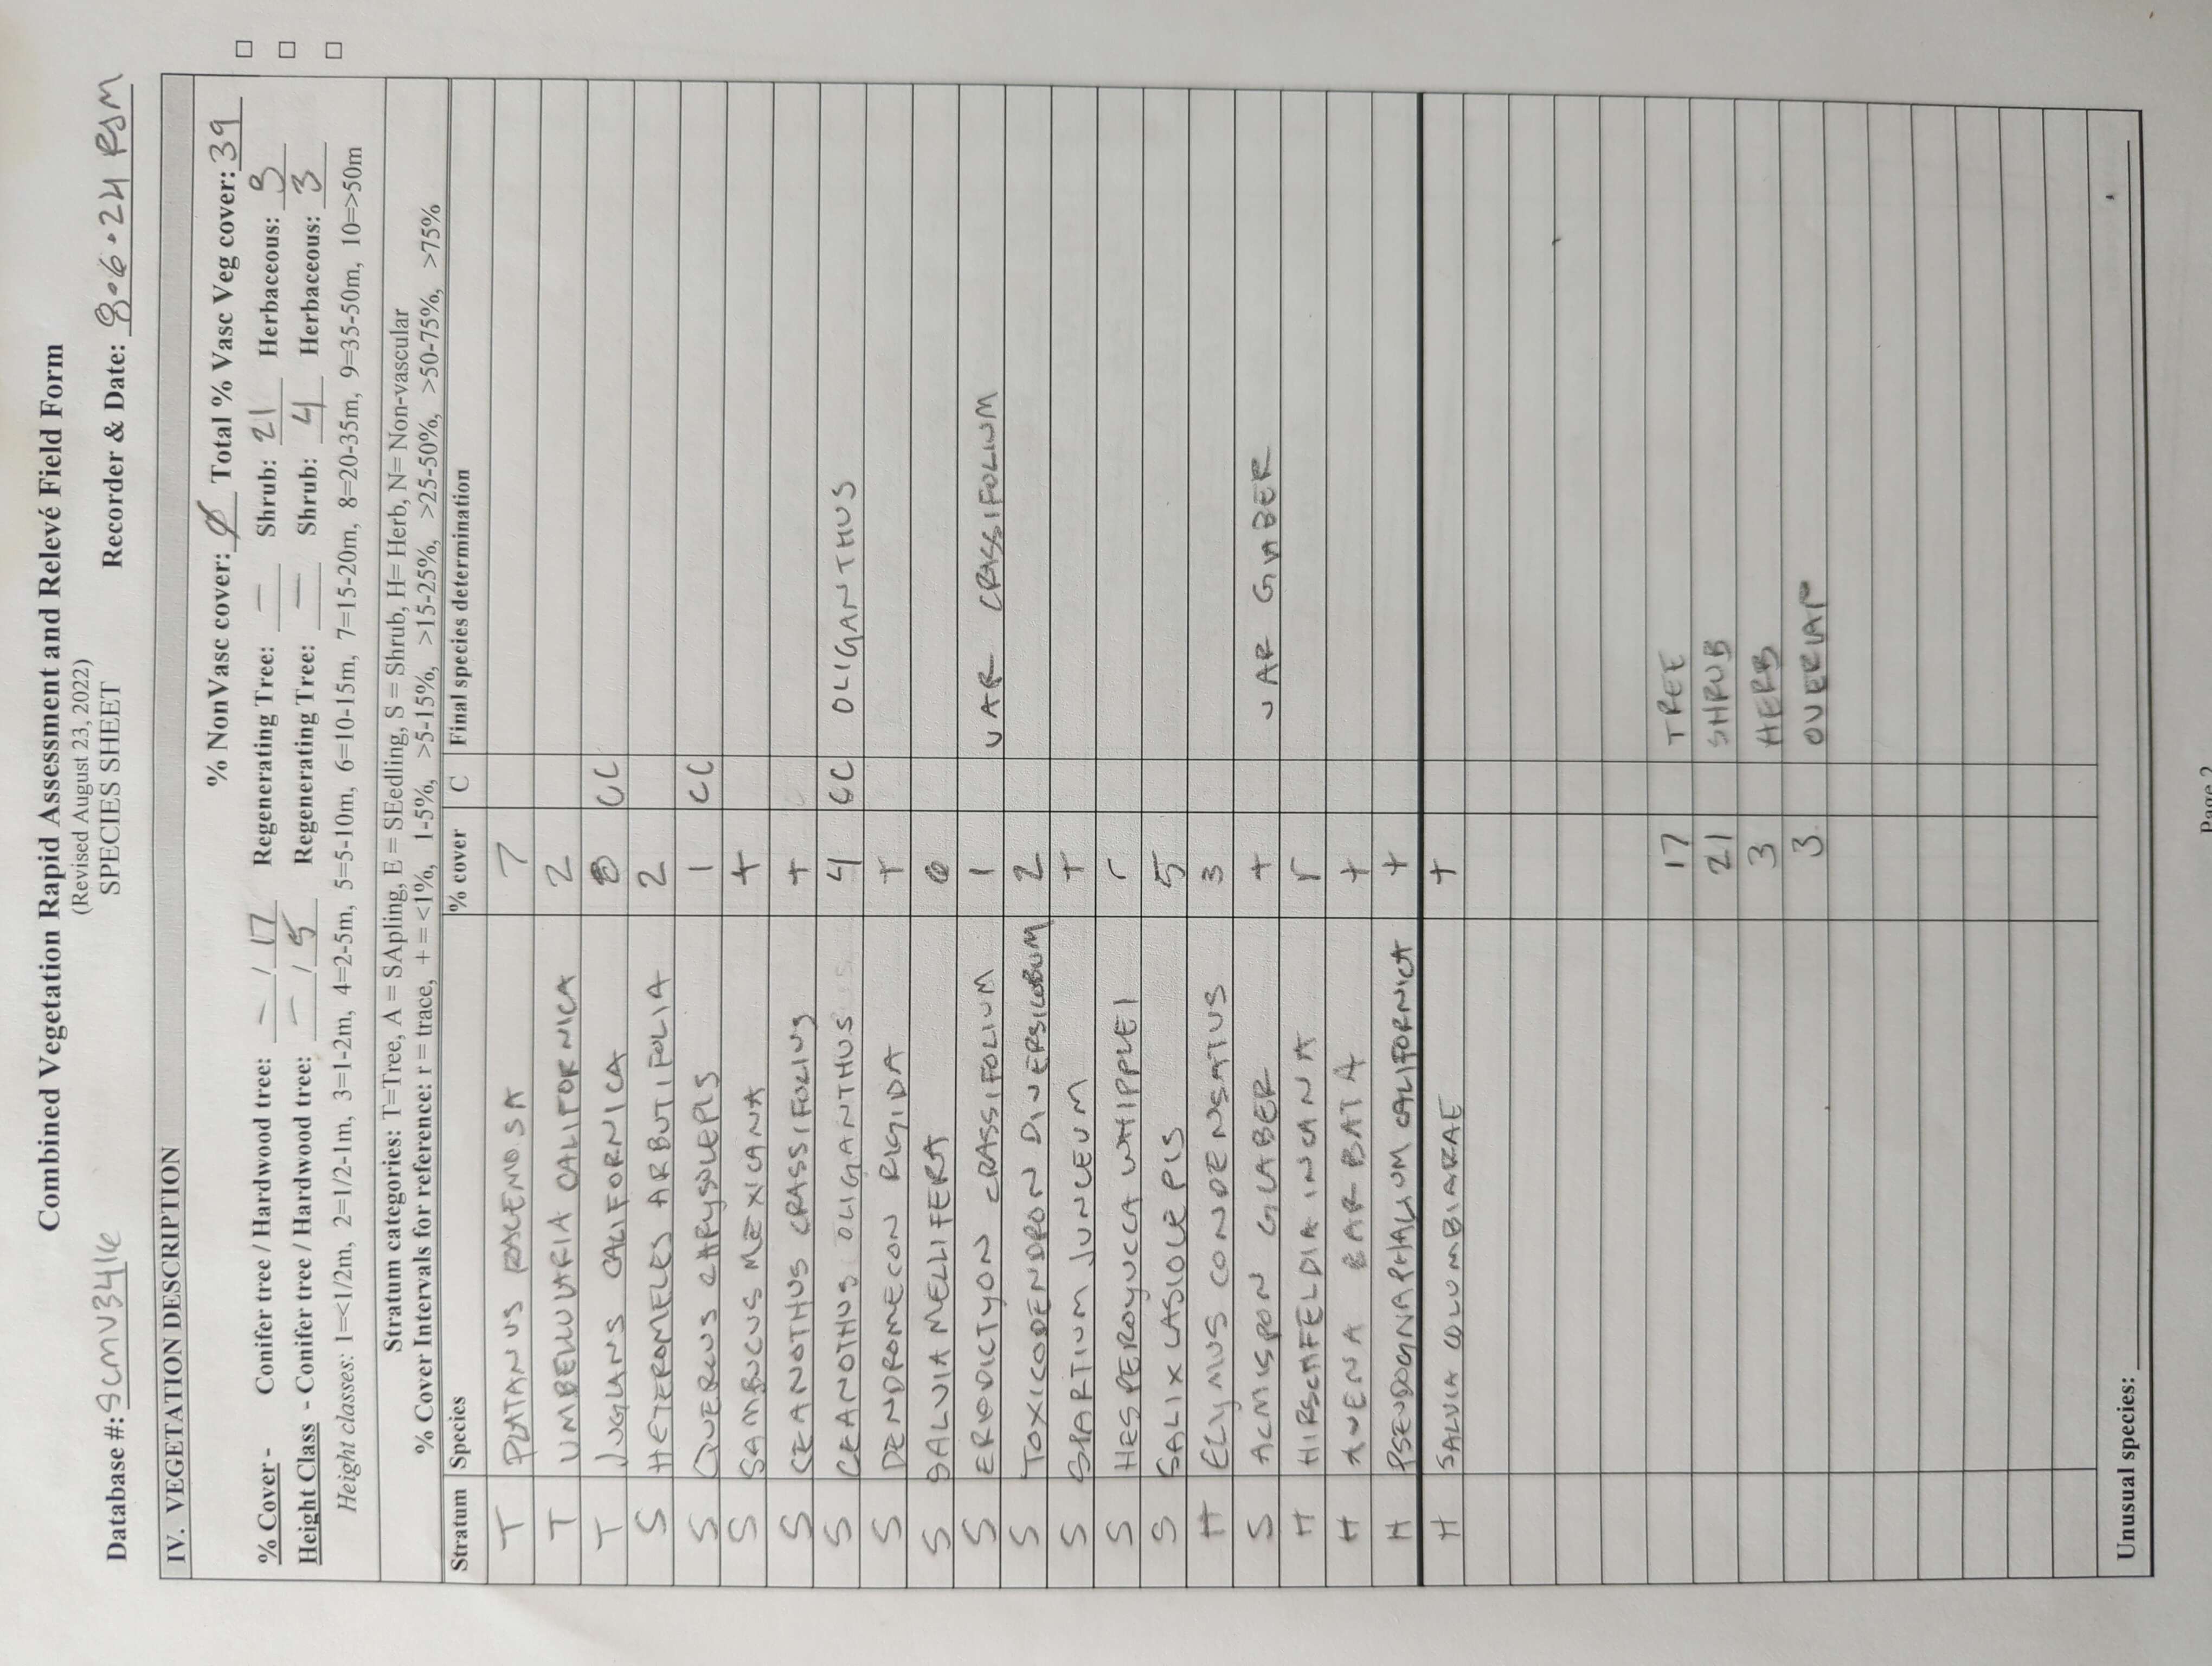 Combined Vegetation Rapid Assessment and Relevé Field Form
(Revised August 23, 2022)
SPECIES SHEET
Database #: SCMV3416 Recorder & Date: 8.6.24 RJM
IV. VEGETATION DESCRIPTION
% NonVasc cover: Ø Total % Vasc Veg cover: 39
% Cover - Conifer tree / Hardwood tree: — / 17 Regenerating Tree: — Shrub: 21 Herbaceous: 3
Height Class - Conifer tree / Hardwood tree: — / 5 Regenerating Tree: — Shrub: 4 Herbaceous: 3
Height classes: 1=<1/2m, 2=1/2-1m, 3=1-2m, 4=2-5m, 5=5-10m, 6=10-15m, 7=15-20m, 8=20-35m, 9=35-50m, 10=>50m
Stratum categories: T=Tree, A = SApling, E = SEedling, S = Shrub, H= Herb, N= Non-vascular
% Cover Intervals for reference: r = trace, + = <1%, 1-5%, >5-15%, >15-25%, >25-50%, >50-75%, >75%
Stratum Species % cover C Final species determination
T PLATANUS RACEMOSA 7
T UMBELLULARIA CALIFORNICA 2
T JUGLANS CALIFORNICA 8 CC
S HETEROMELES ARBUTIFOLIA 2
S QUERCUS CHRYSOLEPIS 1 CC
S SAMBUCUS MEXICANA +
S CEANOTHUS CRASSIFOLIUS +
S CEANOTHUS OLIGANTHUS 4 CC OLIGANTHUS
S DENDROMECON RIGIDA +
S SALVIA MELLIFERA 6
S ERIODICTYON CRASSIFOLIUM 1 VAR CRASSIFOLIUM
S TOXICODENDRON DIVERSILOBUM 2
S SPARTIUM JUNCEUM +
S HESPEROYUCCA WHIPPLEI r
S SALIX LASIOLEPIS 5
H ELYMUS CONDENSATUS 3
S ACMISPON GLABER + VAR GLABER
H HIRSCHFELDIA INCANA r
H AVENA BARBATA +
H PSEUDOGNAPHALIUM CALIFORNICA +
H SALVIA COLUMBIARAE +
17 TREE
21 SHRUB
3 HERB
3 OVERLAP
Unusual species:
Page 2